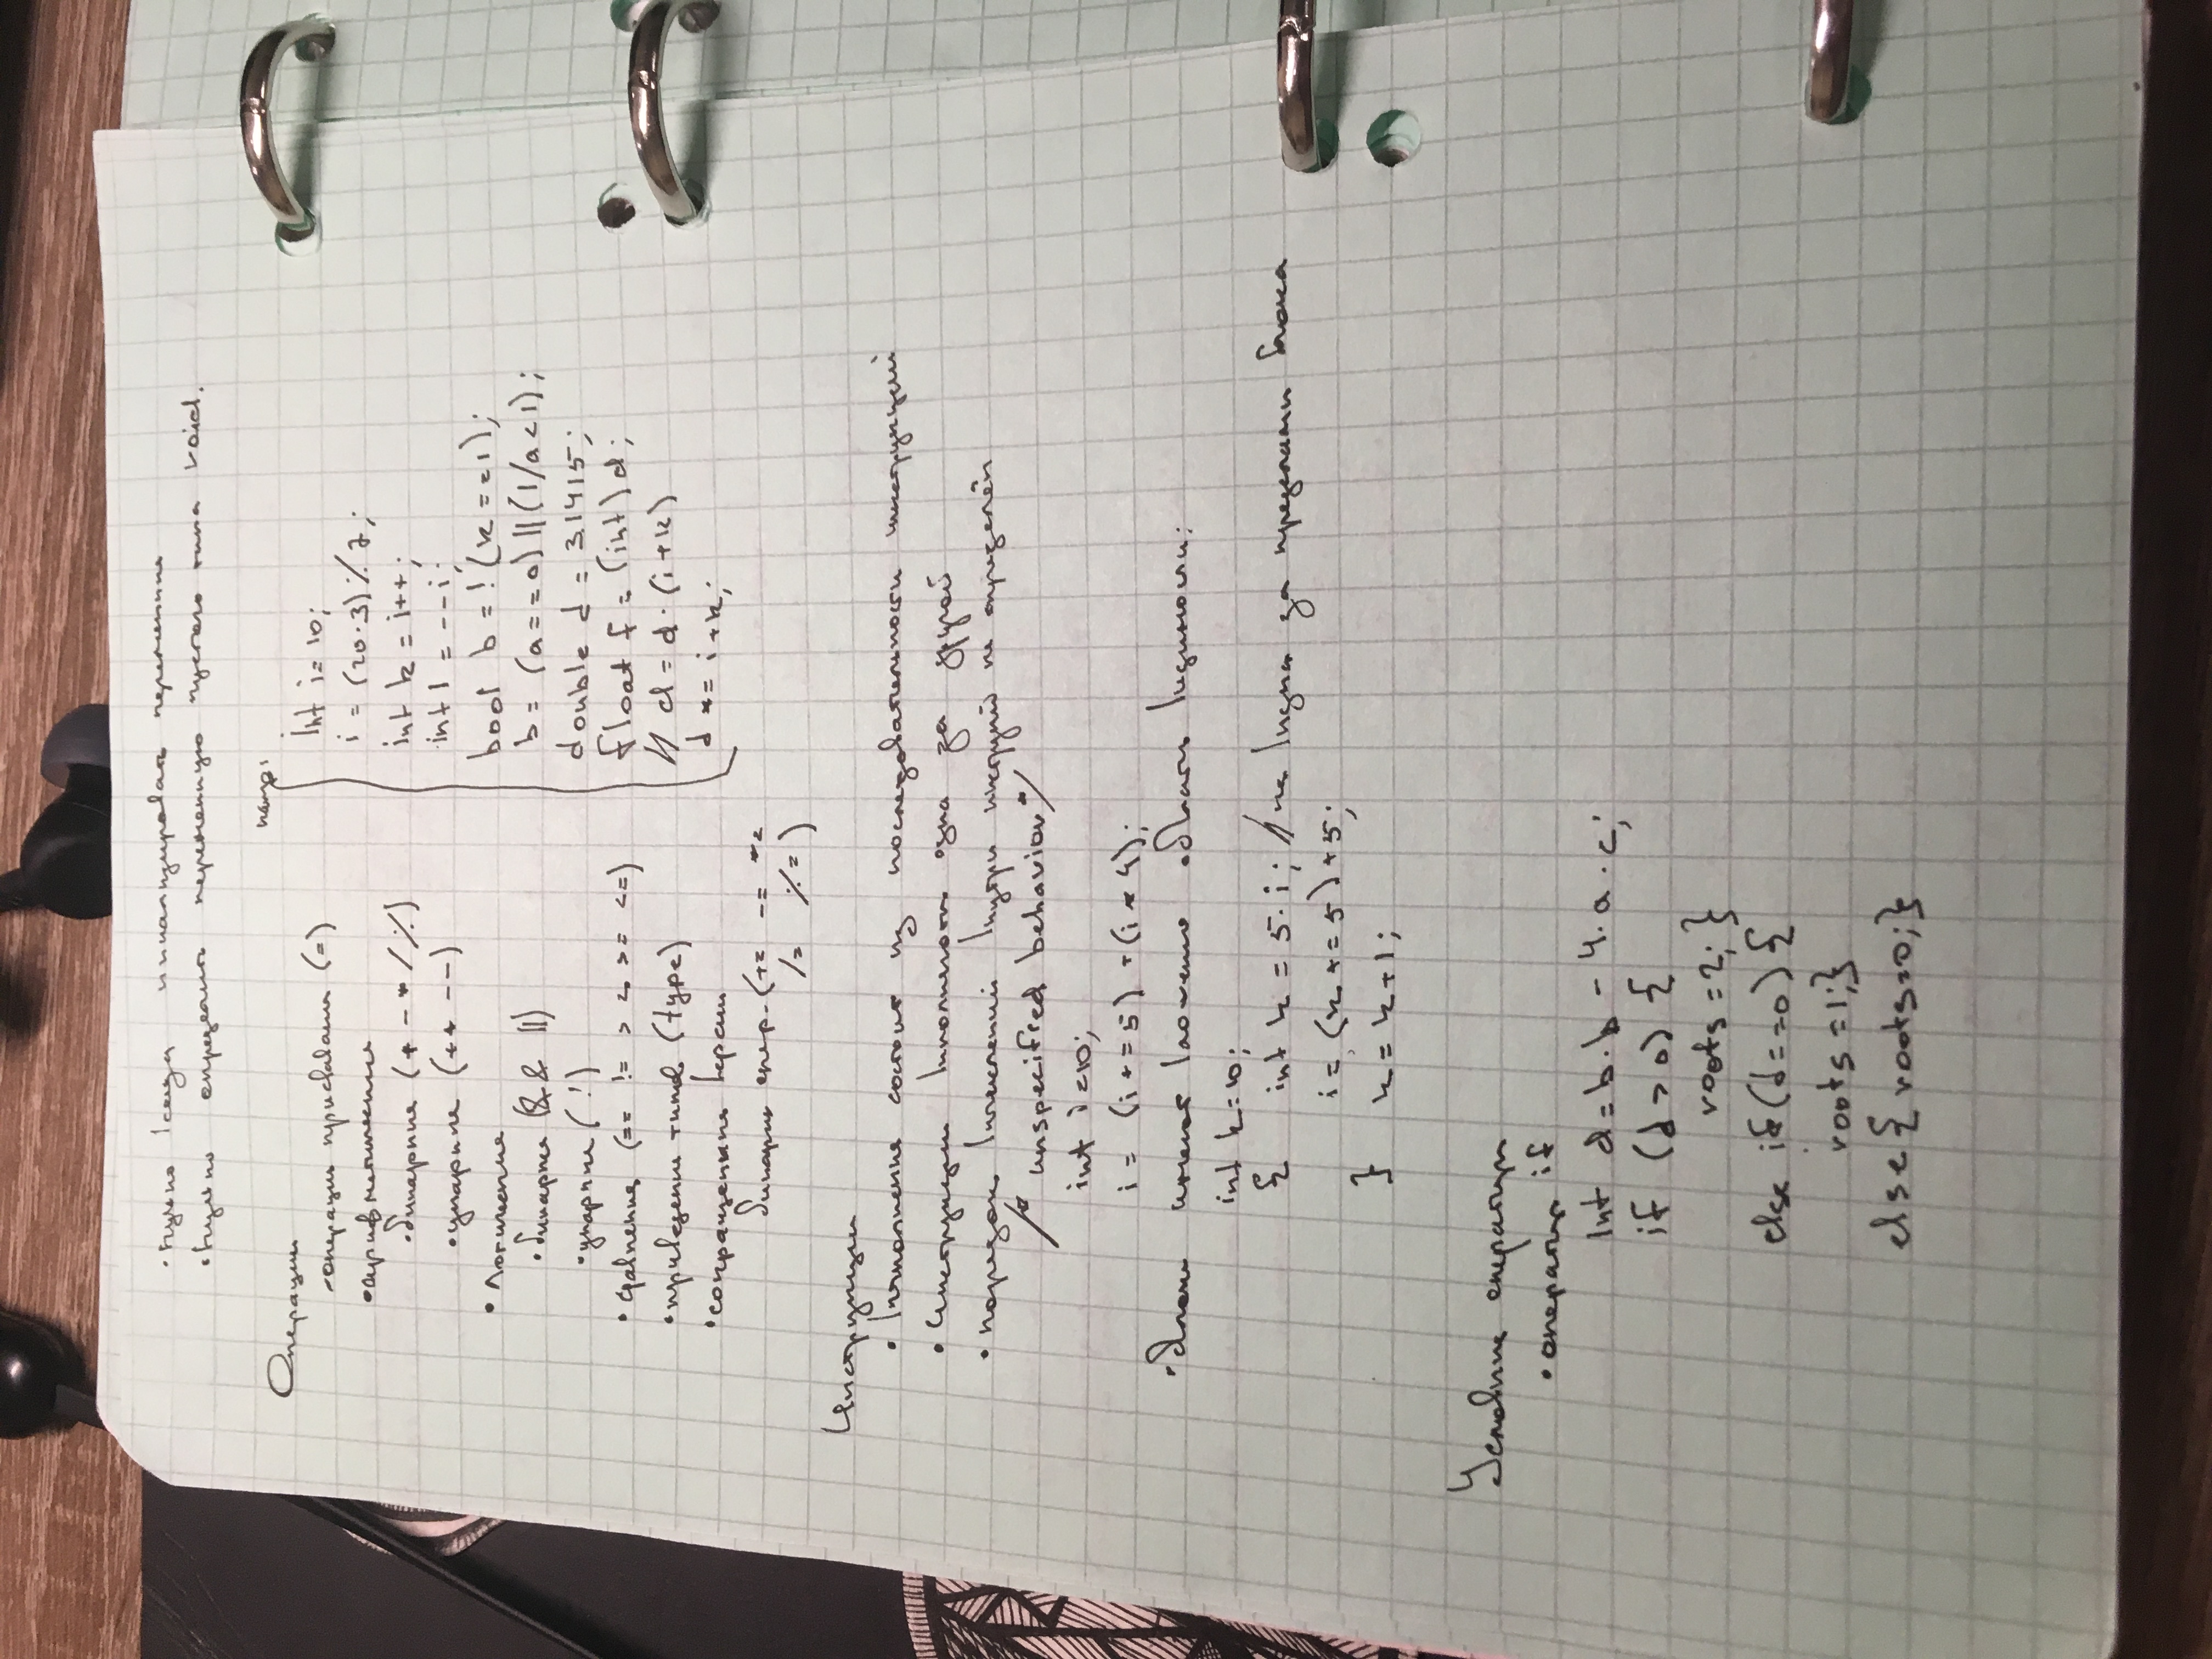 • Нужно всегда инициализировать переменные
• Нужно определить переменную пустого типа void.
Операции
- операция присваивания (=)
• арифметические
• бинарные (+ - * / %)
• унарные (++ --)
• Логические
• бинарные (&& ||)
• унарные (!)
• сравнения (== != > < >= <=)
• приведения типов (type)
• сокращенные версии
бинарных опер. (+= -= *=
/= %=)
напр:
int i = 10;
i = (20·3) % 7;
int k = i++;
int l = --i;
bool b = !(k == 1);
b = (a == 0) || (1/a < 1);
double d = 3.1415;
float f = (int) d;
// d = d · (i+k)
d *= i+k;
Инструкции
• Выполнение состоит из последовательности инструкций
• Инструкции выполняются одна за другой
• порядок вычислений внутри инструкций не определён
/* unspecified behavior */
int i = 10;
i = (i += 5) + (i * 4);
• Блоки имеют область видимости:
int k = 10;
{ int k = 5 · i; // не видна за пределами блока
i = (k += 5) + 5;
} k = k + 1;
Условные операторы
• оператор if
int d = b·b - 4·a·c;
if (d > 0) {
roots = 2; }
else if (d == 0) {
roots = 1; }
else { roots = 0; }